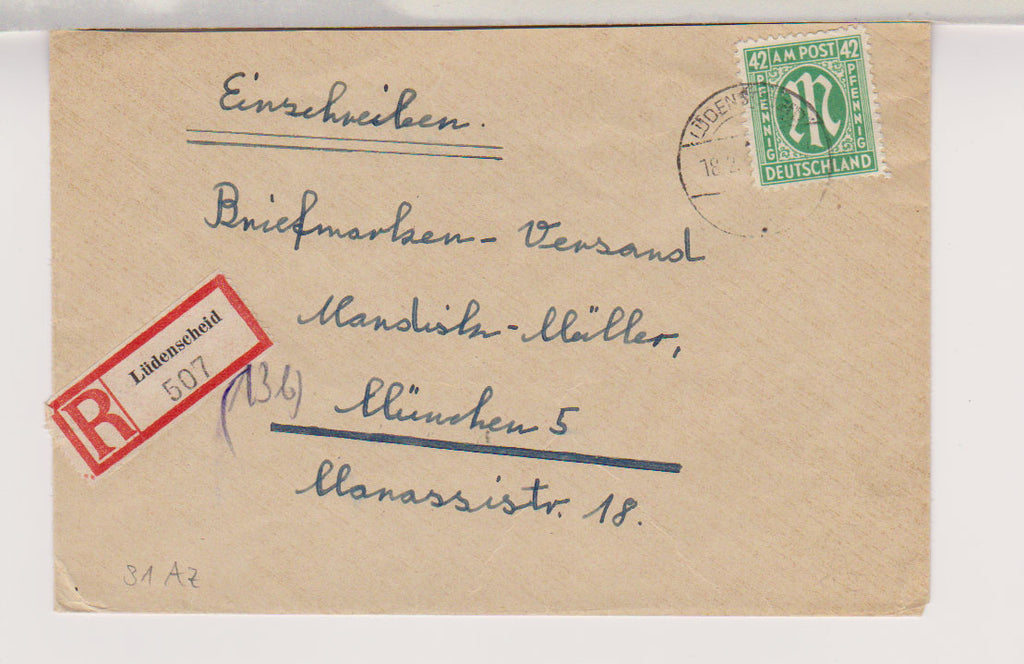 Einschreiben.
42 AM POST 42
PFENNIG
PFENNIG
DEUTSCHLAND
18.2.
Briefmarken-Versand
Mandisk-Müller,
München 5
Manassistr. 18.
R
Lüdenscheid
507
(136)
91 AZ